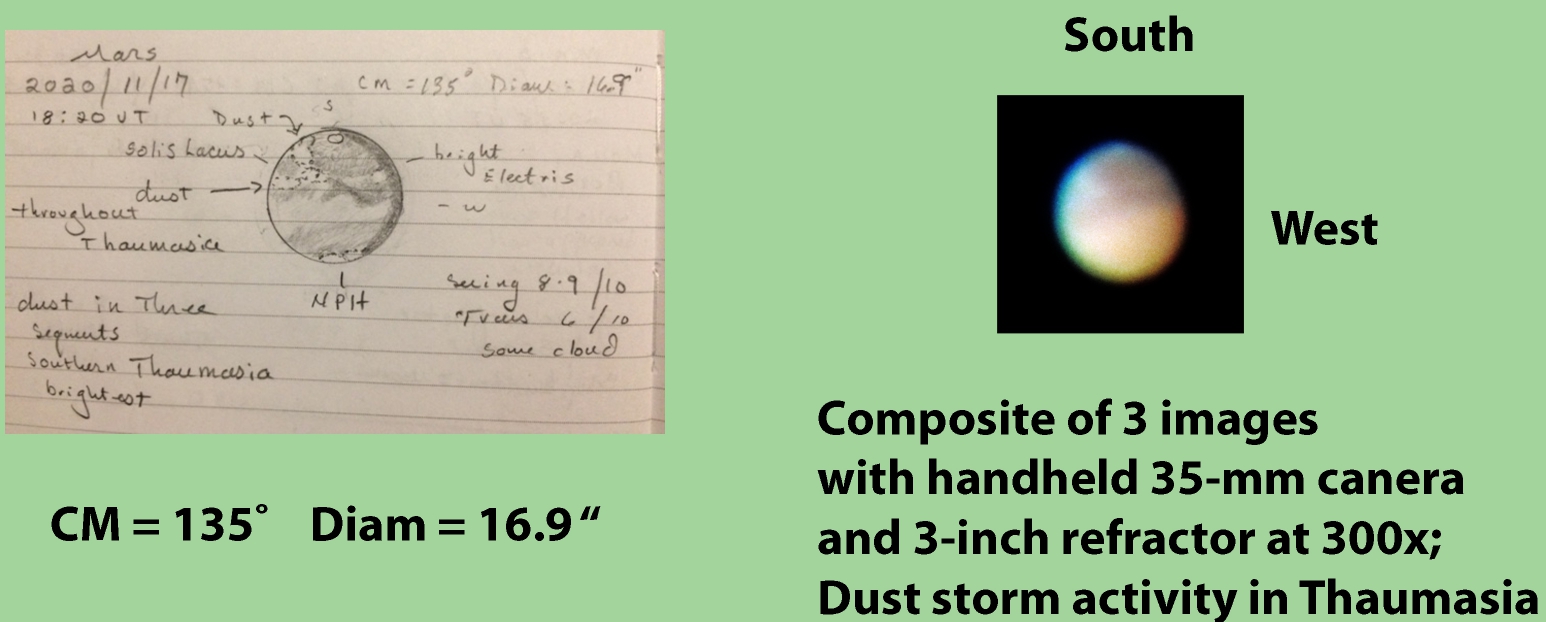 Mars
2020/11/17
CM = 135° Diam = 16.9"
18:20 UT
Dust
S
Solis Lacus
bright
Electris
dust
- W
throughout
Thaumasia
NPH
Seeing 8-9/10
6/10
Some cloud
dust in Three
Segments
Southern Thaumasia
brightest
CM = 135° Diam = 16.9“
South
West
Composite of 3 images
with handheld 35-mm canera
and 3-inch refractor at 300x;
Dust storm activity in Thaumasia